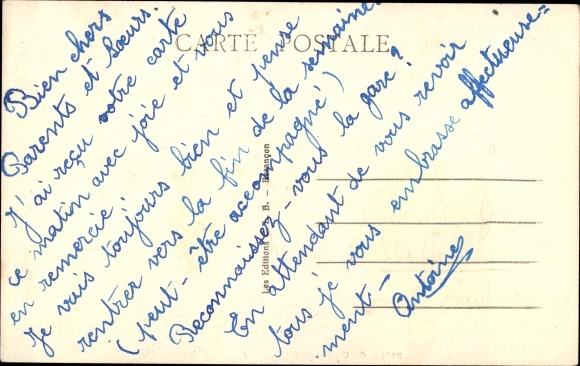 CARTE POSTALE
Bien chers
Parents et Sœurs.
J'ai reçu votre carte
ce matin avec joie et vous
en remercie!
Je vais toujours bien et pense
rentrer vers la fin de la semaine.
(peut-être accompagné)
Reconnaissez-vous la gare?
En attendant de vous revoir
tous je vous embrasse affectueuse=
ment-
Antoine
Les Editions C. L. B. - Besançon